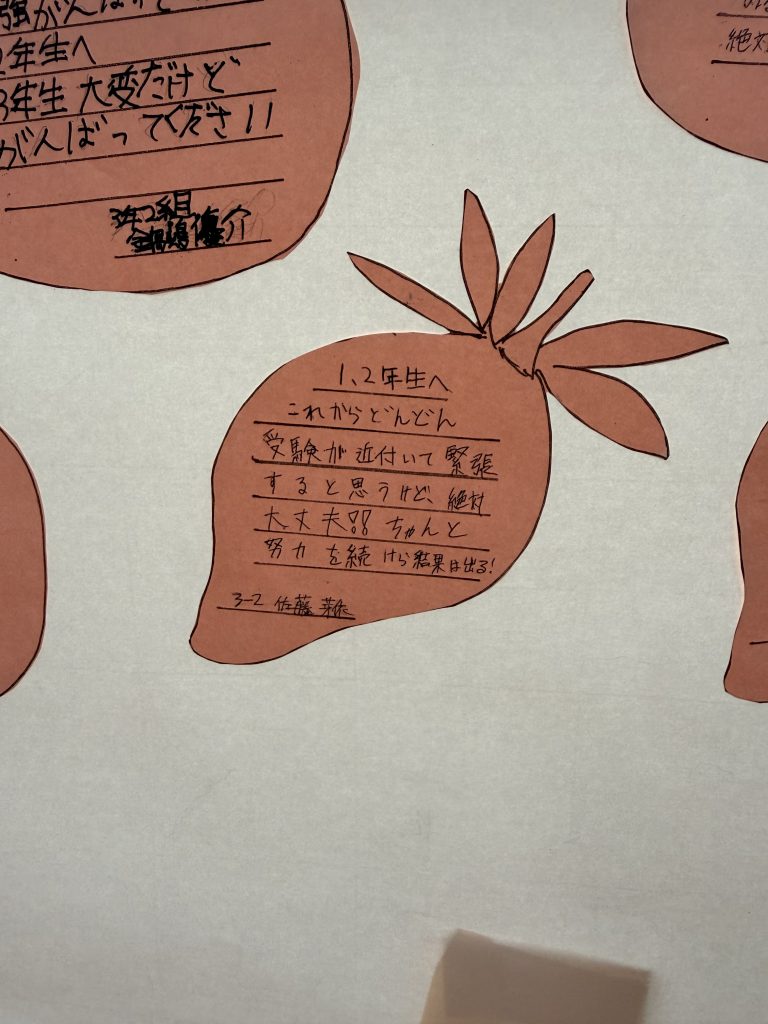 強がんばって
2年生へ
3年生大変だけど
がんばってください!!
3年2組
介
絶対
1、2年生へ
これからどんどん
受験が近付いて緊張
すると思うけど、絶対
大丈夫!! ちゃんと
努力を続けら結果は出る!
3-2 佐藤